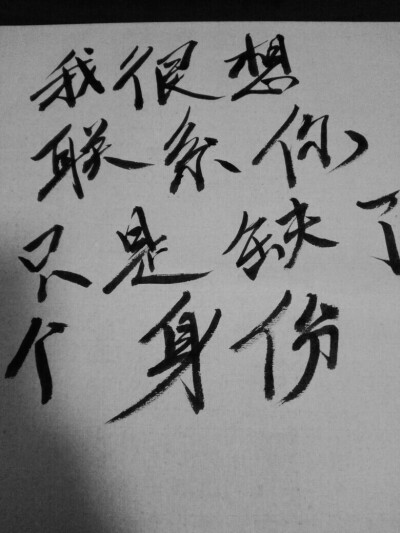 我很想
联系你
只是缺了
个身份